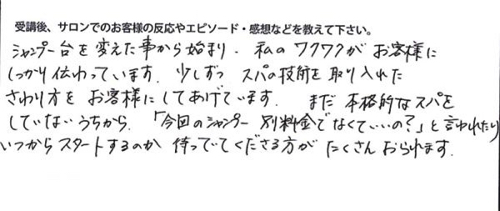 受講後、サロンでのお客様の反応やエピソード・感想などを教えて下さい。
シャンプー台を変えた事から始まり、私のワクワクがお客様に
しっかり伝わっています。少しずつ スパの技術を取り入れた
さわり方を お客様にしてあげています。 まだ 本格的なスパを
していないうちから、「今回のシャンプー 別料金でなくていいの？」と言われたり
いつからスタートするのか 待っでてくださる方が たくさん おられます。